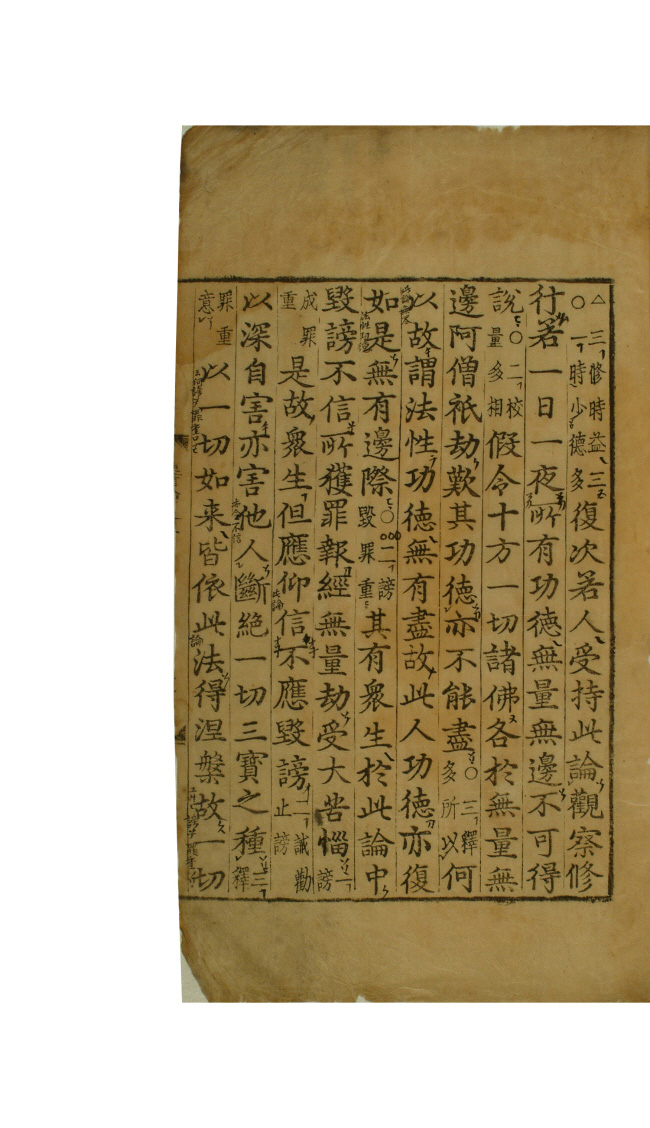 △三修時益三○一時少德多復次若人受持此論觀察修
行若一日一夜所有功德無量無邊不可得
說○二校量多相假令十方一切諸佛各於無量無
邊阿僧祇劫歎其功德亦不能盡○三釋多所以何
以故謂法性功德無有盡故此人功德亦復
如是無有邊際○二謗毀罪重其有衆生於此論中
毀謗不信所獲罪報經無量劫受大苦惱一謗
成罪重是故衆生但應仰信不應毀謗二誡勸止謗
以深自害亦害他人斷絕一切三寶之種三釋
罪重意以一切如来皆依此法得涅槃故一切